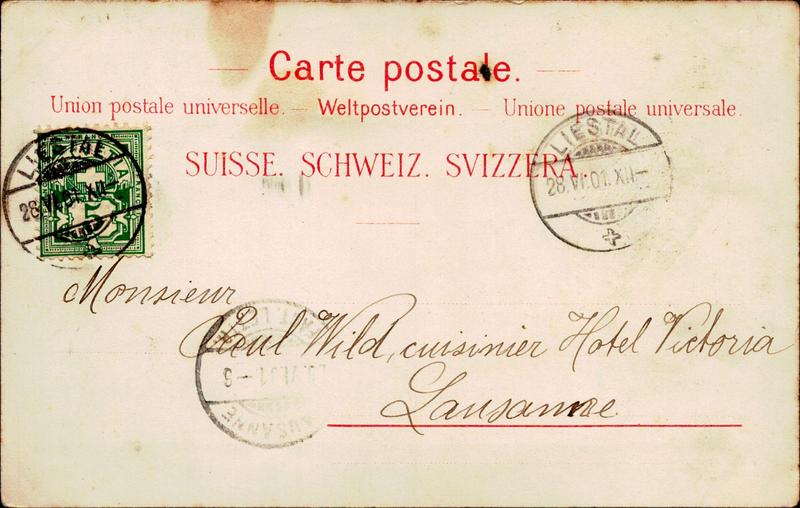 Carte postale.
Union postale universelle. — Weltpostverein. — Unione postale universale.
SUISSE. SCHWEIZ. SVIZZERA.
LIESTAL
28.VI.01.XII
LIESTAL
28.VI.01.XII-
Monsieur
Paul Wild, cuisinier Hotel Victoria
Lausanne
VI.01-8
LAUSANNE